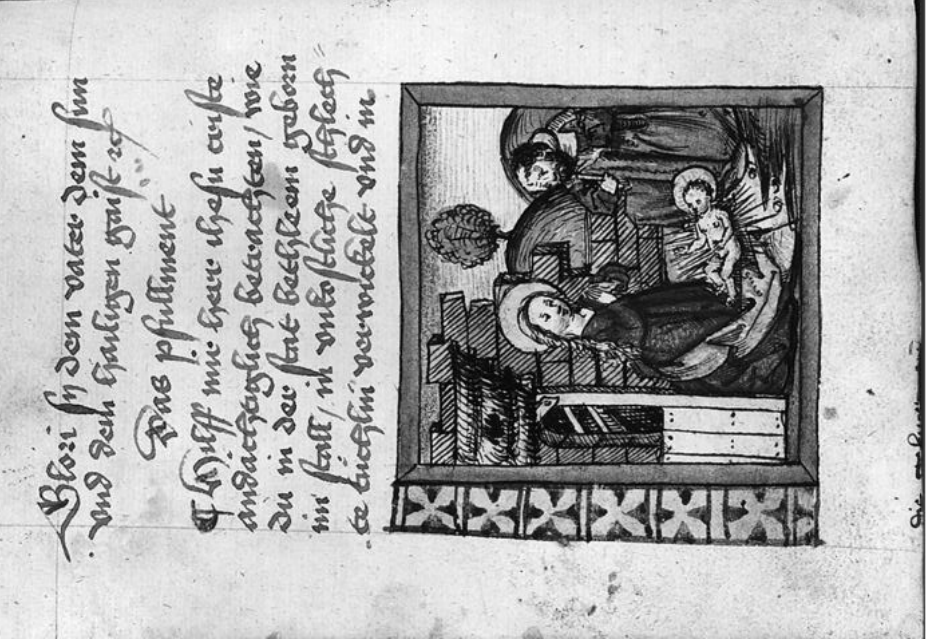 Glori sy dem vatter dem sun
vnd dem hailigen gaist
Das psullment
Hilff mir herr ihesu criste
andachtenglich betrachten / wie
du in der stat bethleem geborn
im stall / in vnkostliche schlech
te tüchlin verwickelt vnd in